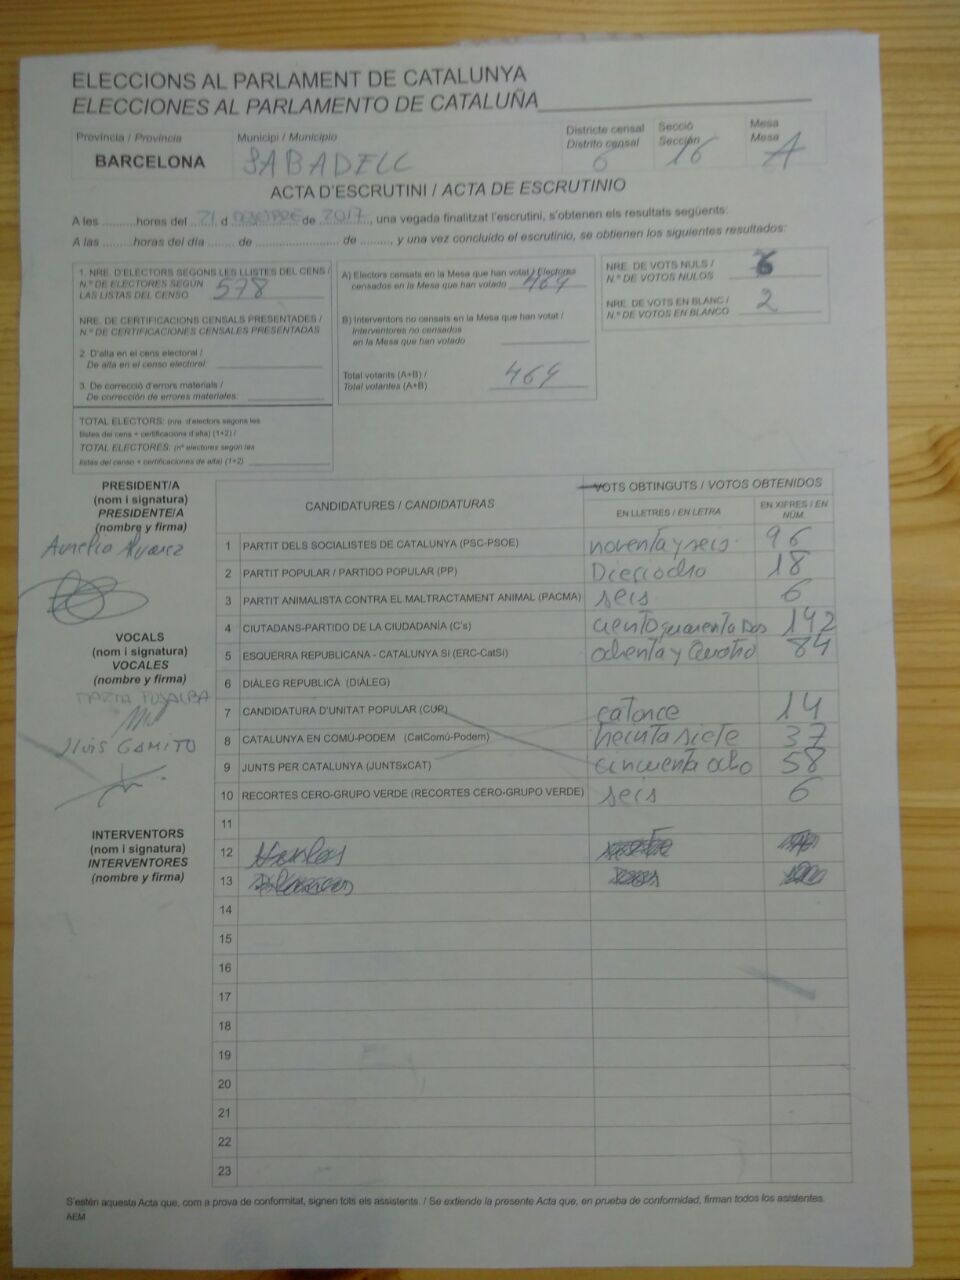 ELECCIONS AL PARLAMENT DE CATALUNYA
ELECCIONES AL PARLAMENTO DE CATALUÑA
Província / Provincia
BARCELONA
Municipi / Municipio
SABADELL
Districte censal
Distrito censal
6
Secció
Sección
16
Mesa
Mesa
A
ACTA D'ESCRUTINI / ACTA DE ESCRUTINIO
A les ..........hores del ..21.. d ............ de ..2017.., una vegada finalitzat l'escrutini, s'obtenen els resultats següents:
A las .........horas del día ....... de ........................ de .........., y una vez concluido el escrutinio, se obtienen los siguientes resultados:
1. NRE. D'ELECTORS SEGONS LES LLISTES DEL CENS /
N.º DE ELECTORES SEGÚN
LAS LISTAS DEL CENSO 578
NRE. DE CERTIFICACIONS CENSALS PRESENTADES /
N.º DE CERTIFICACIONES CENSALES PRESENTADAS
2. D'alta en el cens electoral /
De alta en el censo electoral:
3. De correcció d'errors materials /
De corrección de errores materiales:
TOTAL ELECTORS: (nre. d'electors segons les
llistes del cens + certificacions d'alta) (1+2) /
TOTAL ELECTORES: (nº electores según les
listas del censo + certificaciones de alta) (1+2)
A) Electors censats en la Mesa que han votat / Electores
censados en la Mesa que han votado 469
B) Interventors no censats en la Mesa que han votat /
Interventores no censados
en la Mesa que han votado
Total votants (A+B) /
Total votantes (A+B) 469
NRE. DE VOTS NULS /
N.º DE VOTOS NULOS 6
NRE. DE VOTS EN BLANC /
N.º DE VOTOS EN BLANCO 2
PRESIDENT/A
(nom i signatura)
PRESIDENTE/A
(nombre y firma)
Aurelia Alvarez
VOCALS
(nom i signatura)
VOCALES
(nombre y firma)
LLUIS GAMITO
INTERVENTORS
(nom i signatura)
INTERVENTORES
(nombre y firma)
CANDIDATURES / CANDIDATURAS
VOTS OBTINGUTS / VOTOS OBTENIDOS
EN LLETRES / EN LETRA
EN XIFRES / EN NÚM.
1 PARTIT DELS SOCIALISTES DE CATALUNYA (PSC-PSOE) noventa y seis 96
2 PARTIT POPULAR / PARTIDO POPULAR (PP) Dieciocho 18
3 PARTIT ANIMALISTA CONTRA EL MALTRACTAMENT ANIMAL (PACMA) seis 6
4 CIUTADANS-PARTIDO DE LA CIUDADANÍA (C's) ciento cuarenta Dos 142
5 ESQUERRA REPUBLICANA - CATALUNYA SÍ (ERC-CatSí) ochenta y Cuatro 84
6 DIÀLEG REPUBLICÀ (DIÀLEG)
7 CANDIDATURA D'UNITAT POPULAR (CUP) catorce 14
8 CATALUNYA EN COMÚ-PODEM (CatComú-Podem) treinta siete 37
9 JUNTS PER CATALUNYA (JUNTSxCAT) cincuenta ocho 58
10 RECORTES CERO-GRUPO VERDE (RECORTES CERO-GRUPO VERDE) seis 6
11
12
13
14
15
16
17
18
19
20
21
22
23
S'estén aquesta Acta que, com a prova de conformitat, signen tots els assistents. / Se extiende la presente Acta que, en prueba de conformidad, firman todos los asistentes.
AEM